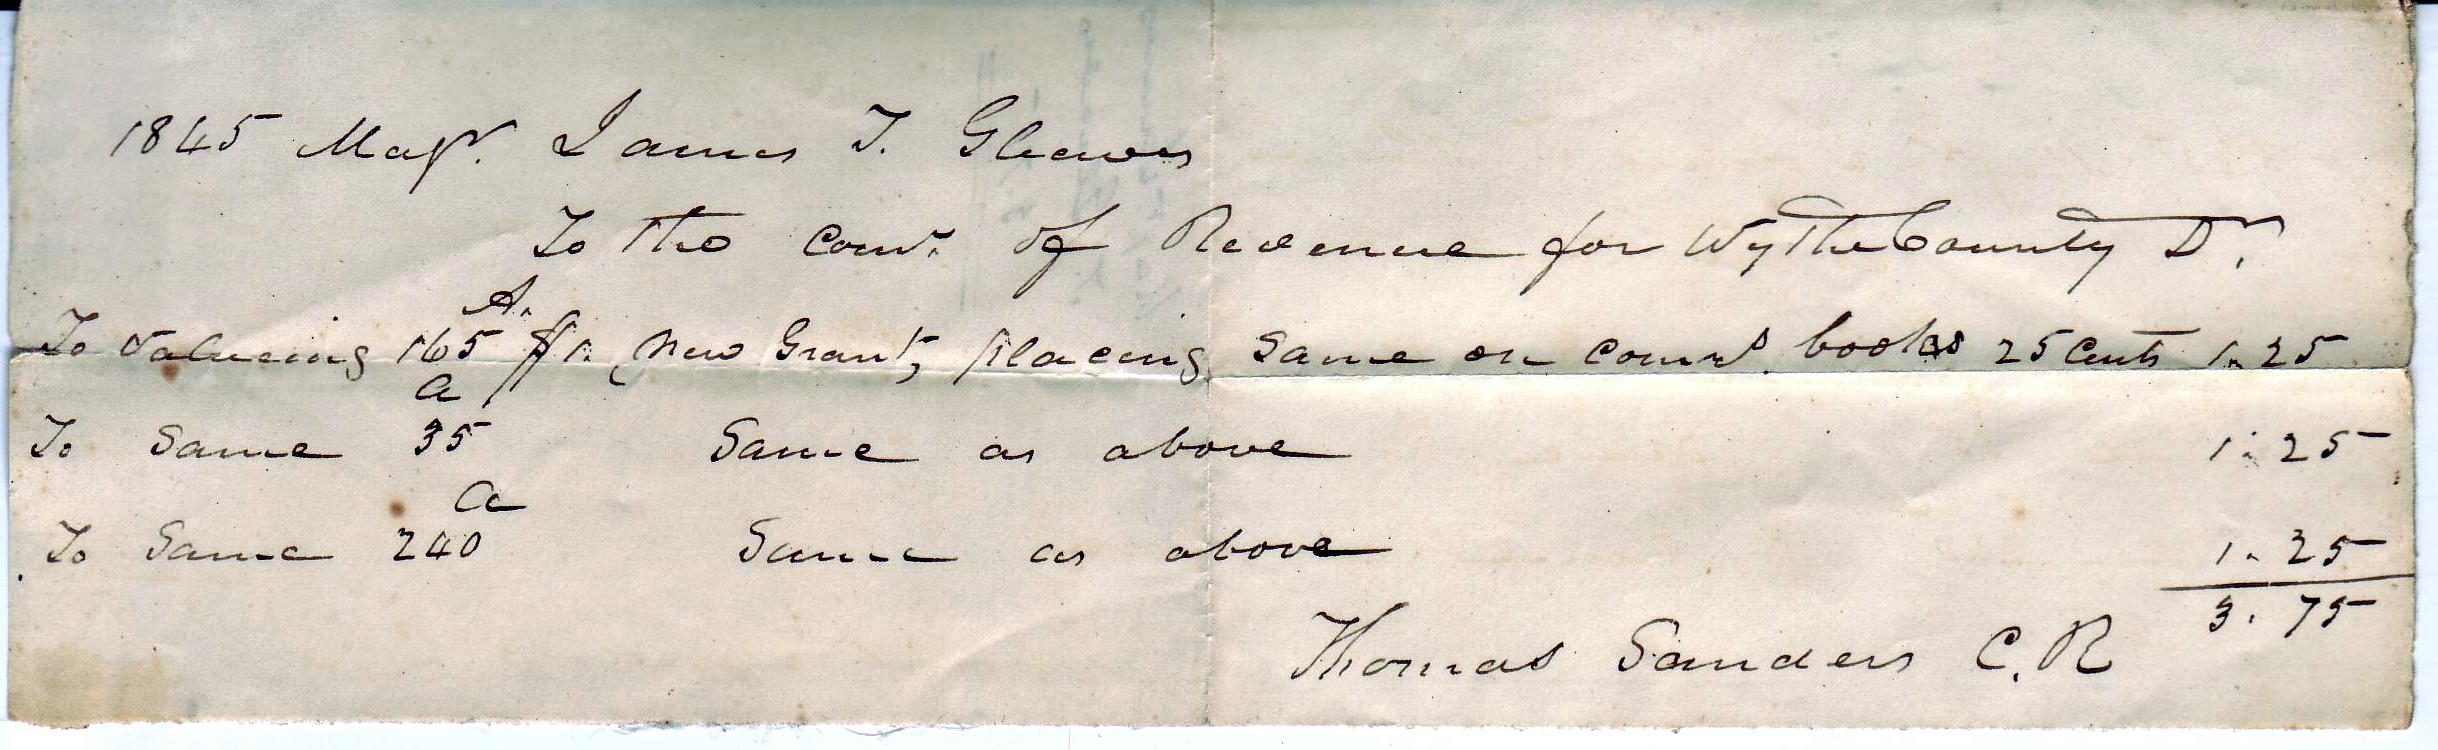 1845 Majr. James T. Gleaves
To the Comr. of Revenue for Wythe County Dr.
A.
To Valueing 165 $1. New Grant, placing same on comrs. books 25 Cents 1.25
a
To Same 35 Same as above 1.25
a
To Same 240 Same as above 1.25
3.75
Thomas Sanders C.R